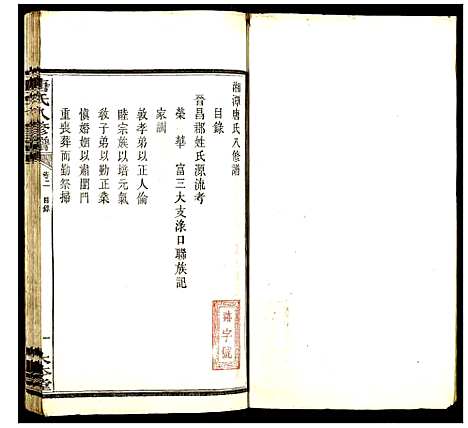 湘潭唐氏八修譜
目錄
晉昌郡姓氏源流考
榮 華 富三大支淥口聯族記
家訓
敦孝弟以正人倫
睦宗族以培元氣
教子弟以勤正業
慎婚姻以肅閨門
重喪葬而勤祭掃
唐氏八修譜
卷二 目錄
一
字號